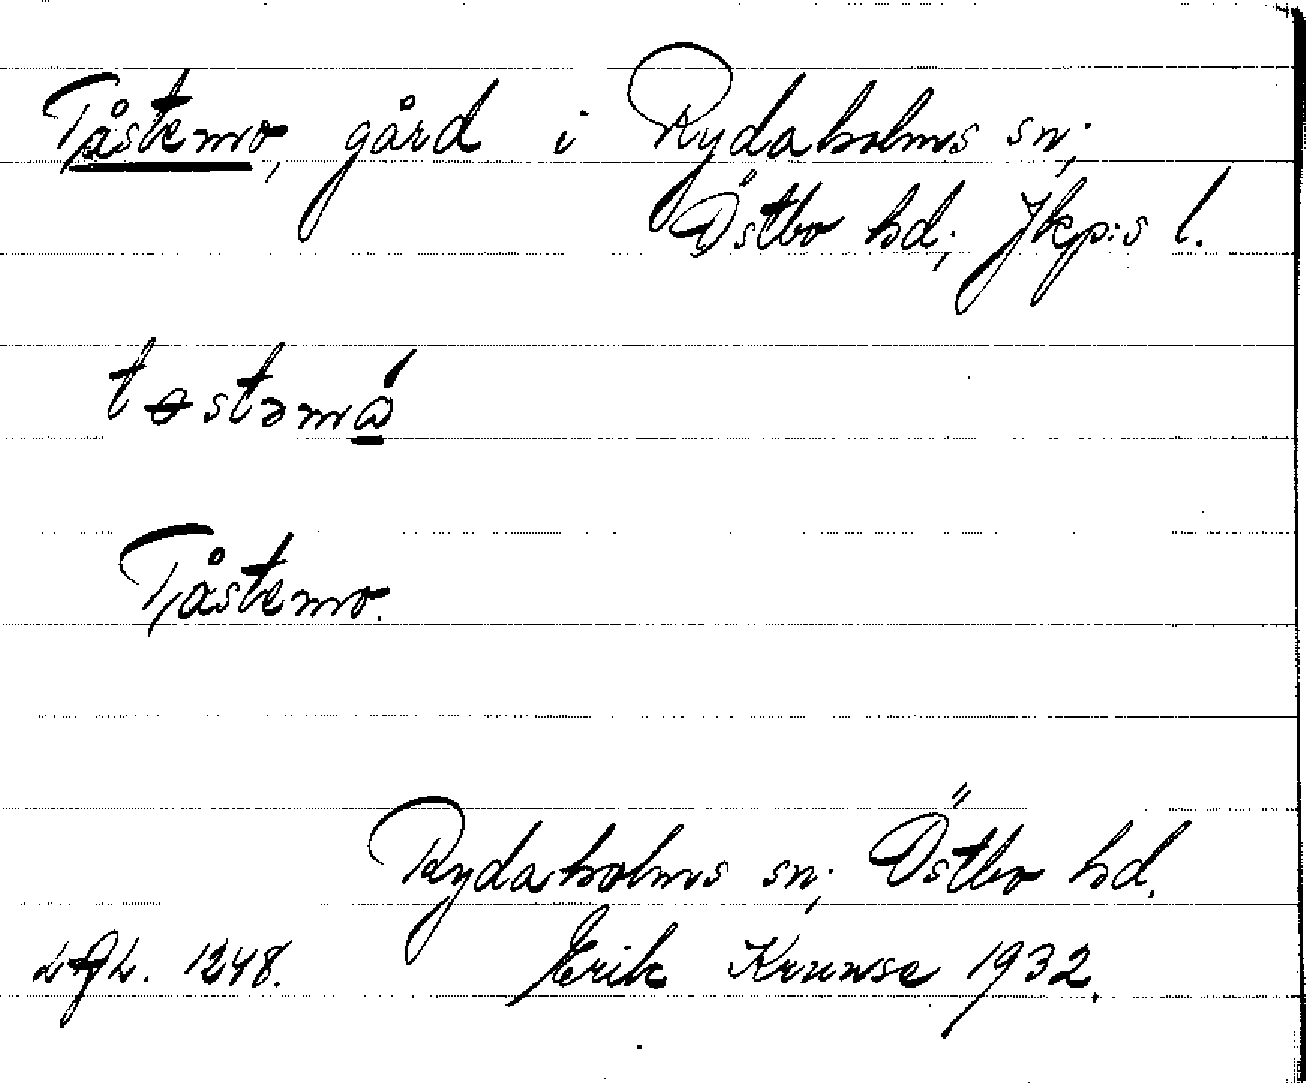 Tåstemo, gård i Rydaholms sn;
Östbo hd; Jkp:s l.
tɵstəmώ̲
Tåstemo.
Rydaholms sn; Östbo hd.
1248. Erik Kruuse 1932.